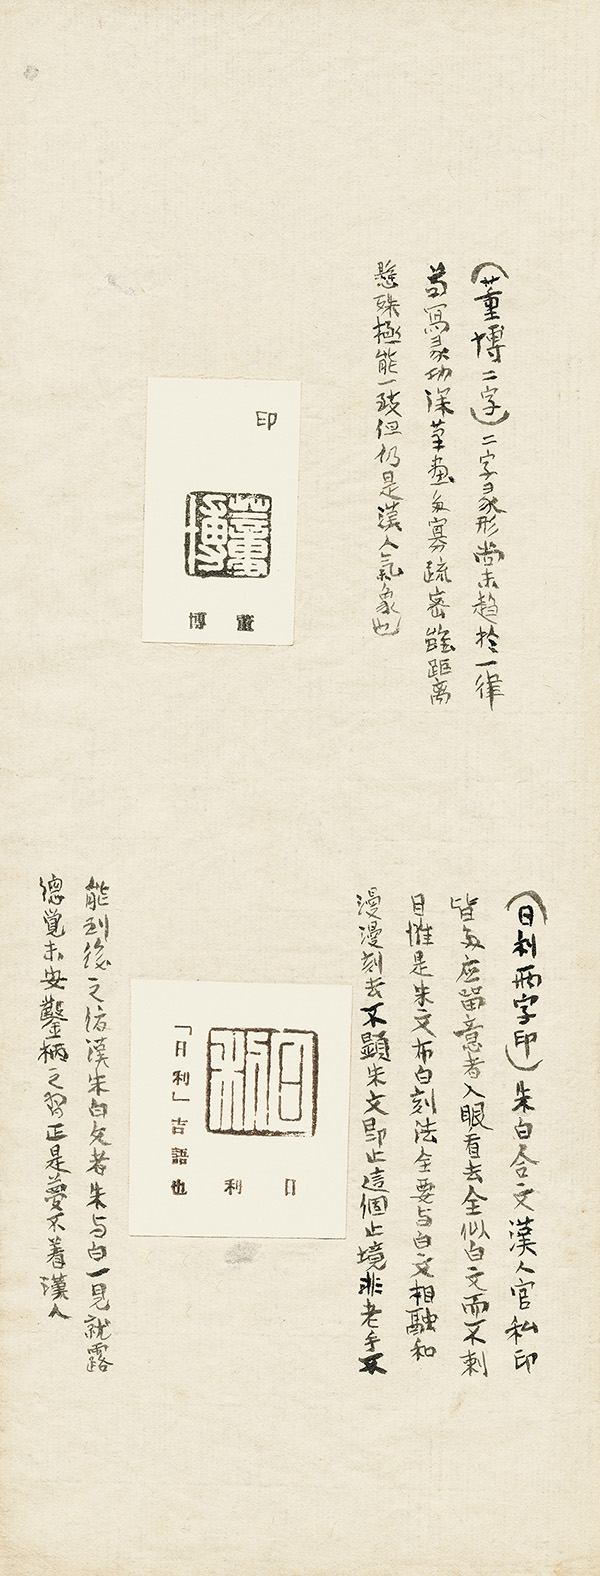 (董博二字)二字彖形尚未趋於一律
苟寫彖功深茟画多寡疏密雖距离
懸殊極能一致但仍是漢人氣象也
印
董博
董
博
(日利两字印)朱白合文漢人官私印
皆多应留意者入眼看去全似白文而不刺
目惟是朱文布白刻法全要与白文相融和
漫漫刻去不顯朱文即止這個止境非老手不
日利
日
利
「日利」吉語也
能到後之仿漢朱白文者朱与白一見就露
德覚未安鑿柄之習正是夢不着漢人